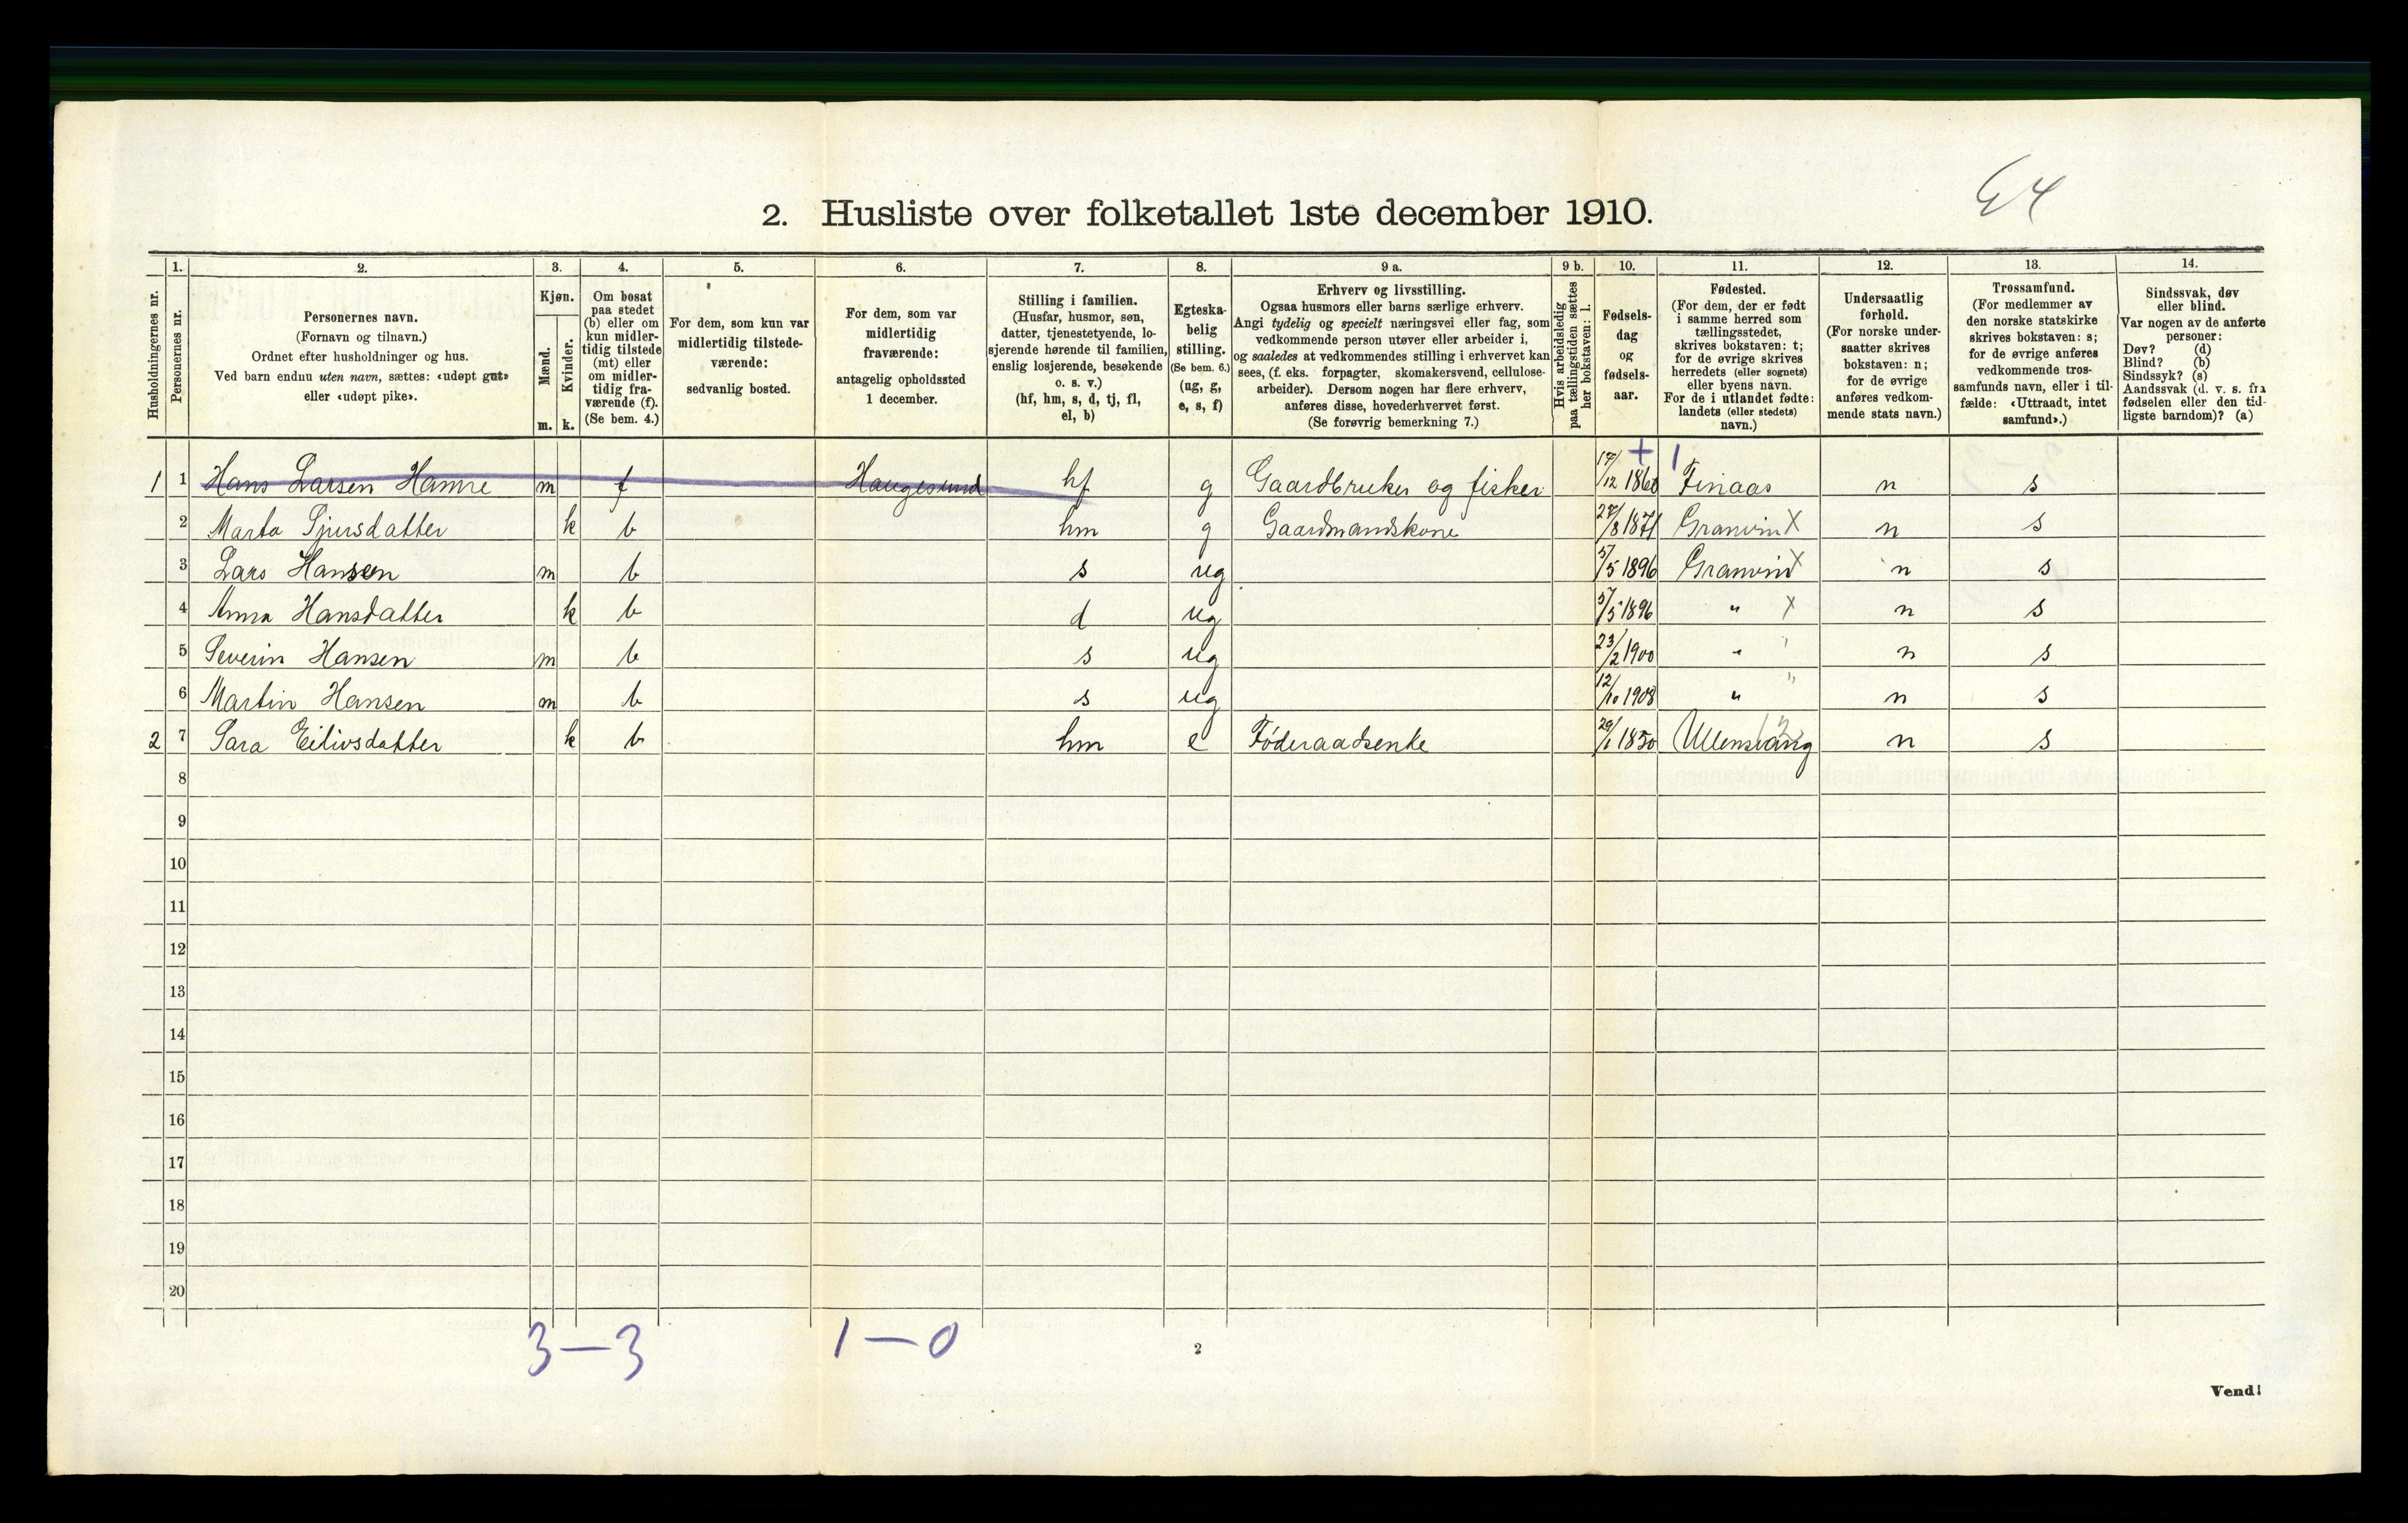 64
2. Husliste over folketallet 1ste december 1910.
Husholdningernes nr.
1.
Personernes nr.
2.
Personernes navn.
(Fornavn og tilnavn.)
Ordnet efter husholdninger og hus.
Ved barn endnu uten navn, sættes: «udøpt gut»
eller «udøpt pike».
3.
Kjøn.
Mænd.
m.
Kvinder.
k.
4.
Om bosat
paa stedet
(b) eller om
kun midler-
tidig tilstede
(mt) eller
om midler-
tidig fra-
værende (f).
(Se bem. 4.)
5.
For dem, som kun var
midlertidig tilstede-
værende:
sedvanlig bosted.
6.
For dem, som var
midlertidig
fraværende:
antagelig opholdssted
1 december.
7.
Stilling i familien.
(Husfar, husmor, søn,
datter, tjenestetyende, lo-
sjerende hørende til familien,
enslig losjerende, besøkende
o. s. v.)
(hf, hm, s, d, tj, fl,
el, b)
8.
Egteska-
belig
stilling.
(Se bem. 6.)
(ug, g,
e, s, f)
9 a.
Erhverv og livsstilling.
Ogsaa husmors eller barns særlige erhverv.
Angi tydelig og specielt næringsvei eller fag, som
vedkommende person utøver eller arbeider i,
og saaledes at vedkommendes stilling i erhvervet kan
sees, (f. eks. forpagter, skomakersvend, cellulose-
arbeider). Dersom nogen har flere erhverv,
anføres disse, hovederhvervet først.
(Se forøvrig bemerkning 7.)
9 b.
Hvis arbeidsledig
paa tællingstiden sættes
her bokstaven: l.
10.
Fødsels-
dag
og
fødsels-
aar.
11.
Fødested.
(For dem, der er født
i samme herred som
tællingsstedet,
skrives bokstaven: t;
for de øvrige skrives
herredets (eller sognets)
eller byens navn.
For de i utlandet fødte:
landets (eller stedets)
navn.)
12.
Undersaatlig
forhold.
(For norske under-
saatter skrives
bokstaven: n;
for de øvrige
anføres vedkom-
mende stats navn.)
13.
Trossamfund.
(For medlemmer av
den norske statskirke
skrives bokstaven: s;
for de øvrige anføres
vedkommende tros-
samfunds navn, eller i til-
fælde: «Uttraadt, intet
samfund».)
14.
Sindssvak, døv
eller blind.
Var nogen av de anførte
personer:
Døv? (d)
Blind? (b)
Sindssyk? (s)
Aandssvak (d. v. s. fra
fødselen eller den tid-
ligste barndom)? (a)
1 1 Hans Larsen Hamre m f Haugesund hf g Gaardbruker og fisker 17/12 1860 Finaas n s
2 Marta Sjursdatter k b hm g Gaardmandskone 1871 Granvin X n s
3 Lars Hansen m b s ug 5/5 1896 Granvin X n s
4 Anna Hansdatter k b d ug 5/5 1896 " X n s
5 Severin Hansen m b s ug 23/2 1900 " " n s
6 Martin Hansen m b s ug 12/10 1908 " " n s
2 7 Sara Eilivsdatter k b hm e Føderaadsenke 1850 Ullensvang n s
8
9
10
11
12
13
14
15
16
17
18
19
20
3 — 3 1 — 0
2
Vend!